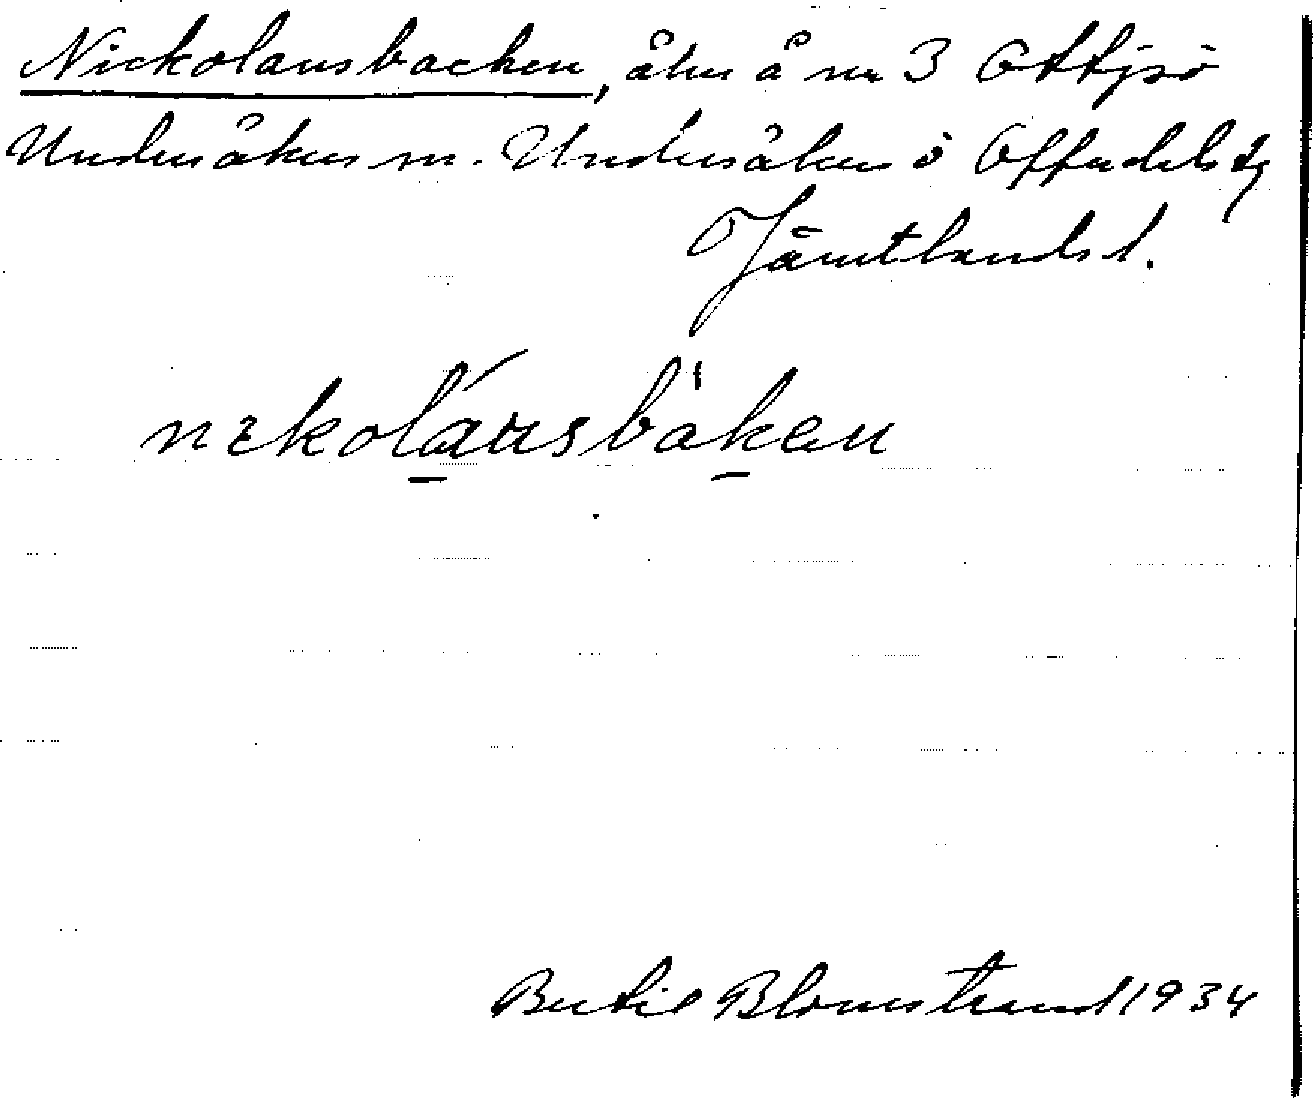 Nickolausbacken, åker å nr 3 Ottsjö
Undersåkers sn. Undersåkers o Offerdals tg
Jämtlands l.
nɪkoláusbàkɐn
Bertil Blomstrand 1934